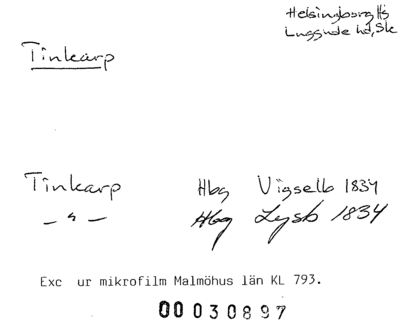 Helsingborg Hs
Luggude hd, Sk
Tinkarp
Tinkarp Hbg Vigselb 1834
—"— Hbg Lysb 1834
Exc ur mikrofilm Malmöhus län KL 793.
00030897